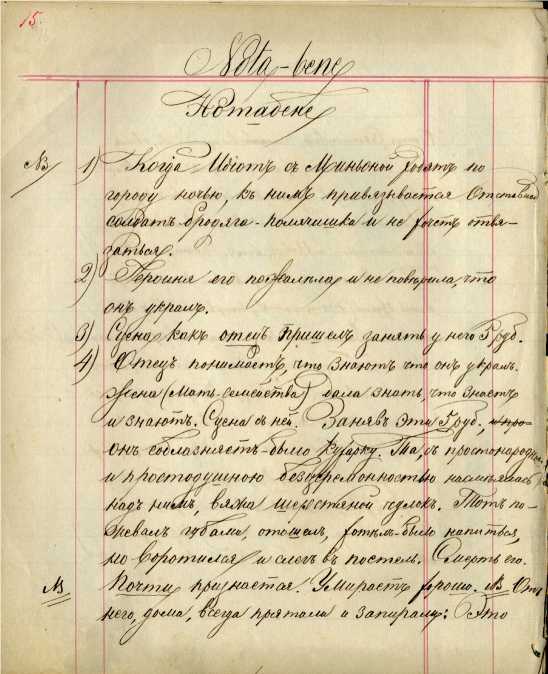 15.
Nota-bene
Нотабене
NB 1) Когда Идіотъ съ Миньоной ходятъ по
городу ночью, къ нимъ привязывается отставной
солдатъ бродяга-полячишка и не хочетъ отвя-
заться.
2) Героиня его пожалѣла и не повѣрила, что
онъ укралъ.
3) Сцена какъ отецъ пришелъ занять у него 5 руб.
4) Отецъ понимаетъ, что знаютъ что онъ укралъ.
Жена (Мать-семейства) дала знать, что знаетъ
и знаютъ. Сцена съ ней. Занявъ эти 5 руб.,
онъ соблазняетъ-было кухарку. Та, съ простонародною
и простодушною безцеремонностью насмѣялась
надъ нимъ, вяжа шерстяной чулокъ. Тотъ по-
жевалъ губами, отошелъ, хотѣлъ-было напиться,
но воротился и слегъ въ постель. Смерть его.
NB Почти признается. Умираетъ хорошо. NB Отъ
него, дома, всегда прятали и запирали: Это